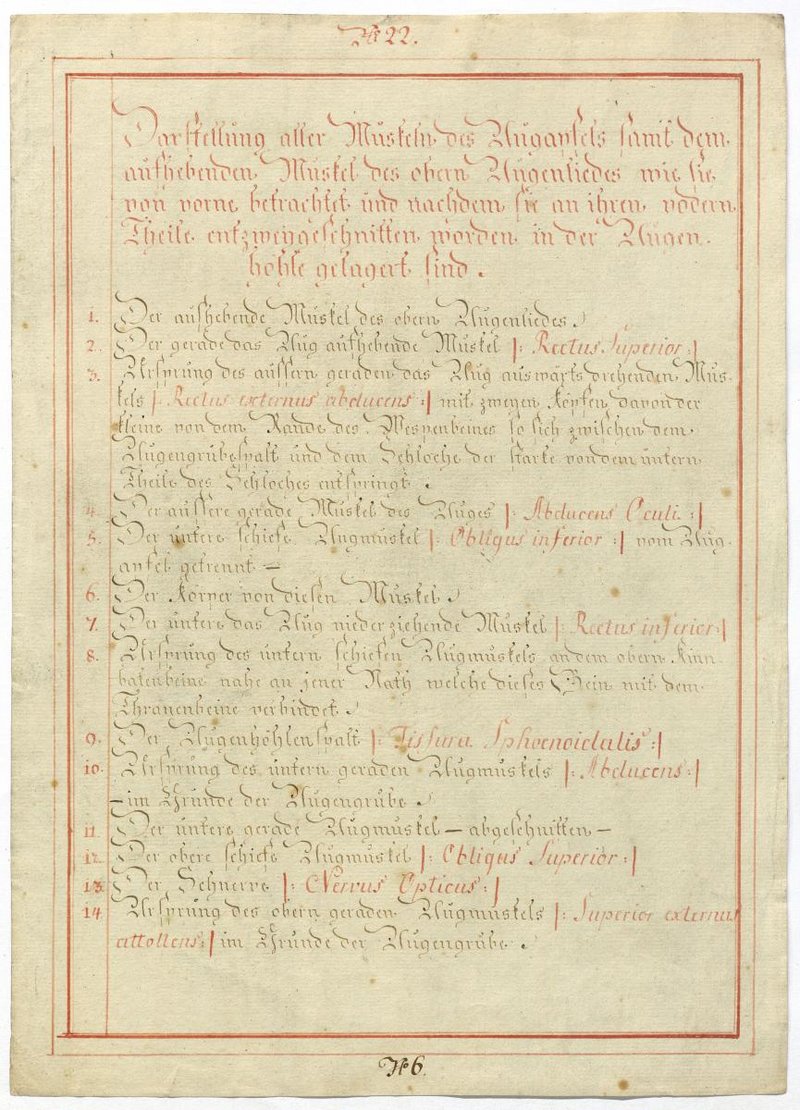 № 22.
Darstellung aller Muskeln des Augapfels samt dem
aufhebenden Muskel des obern Augenliedes wie sie
von vorne betrachtet und nachdem sie an ihren vodern
Theile entzweygeschnitten worden in der Augen
höhle gelagert sind.
1. Der aufhebende Muskel des obern Augenliedes.
2. Der gerade das Aug aufhebende Muskel |: Rectus Superior :|
3. Ursprung des äussern geraden das Aug auswärts drehenden Mus-
kels |: Rectus externus abducens :| mit zweyen Köpfen davon der
kleine von dem Rande des Wespenbeines so sich zwischen dem
Augengrubespalt und dem Sehloche der starke von dem untern
Theile des Sehloches entspringt.
4. Der äussere gerade Muskel des Auges |: Abducens Oculi :|
5. Der untere schiefe Augmuskel |: Obliqus inferior :| vom Aug-
apfel getrennt —
6. Der Körper von diesen Muskel.
7. Der untere das Aug niederziehende Muskel |: Rectus inferior :|
8. Ursprung des untern schiefen Augmuskels an dem obern Kinn-
bakenbeine nahe an jener Nath welche dieses Bein mit dem
Thränenbeine verbindet.
9. Der Augenhöhlenspalt |: Fissura Sphoenoidalis :|
10. Ursprung des untern geraden Augmuskels |: Abducens :|
— im Grunde der Augengrube.
11. Der untere gerade Augmuskel — abgeschnitten —
12. Der obere schiefe Augmuskel |: Obliqus Superior :|
13. Der Sehnerve |: Nervus Opticus :|
14. Ursprung des obern geraden Augmuskels |: Superior externus
attollens :| im Grunde der Augengrube.
№ 6.